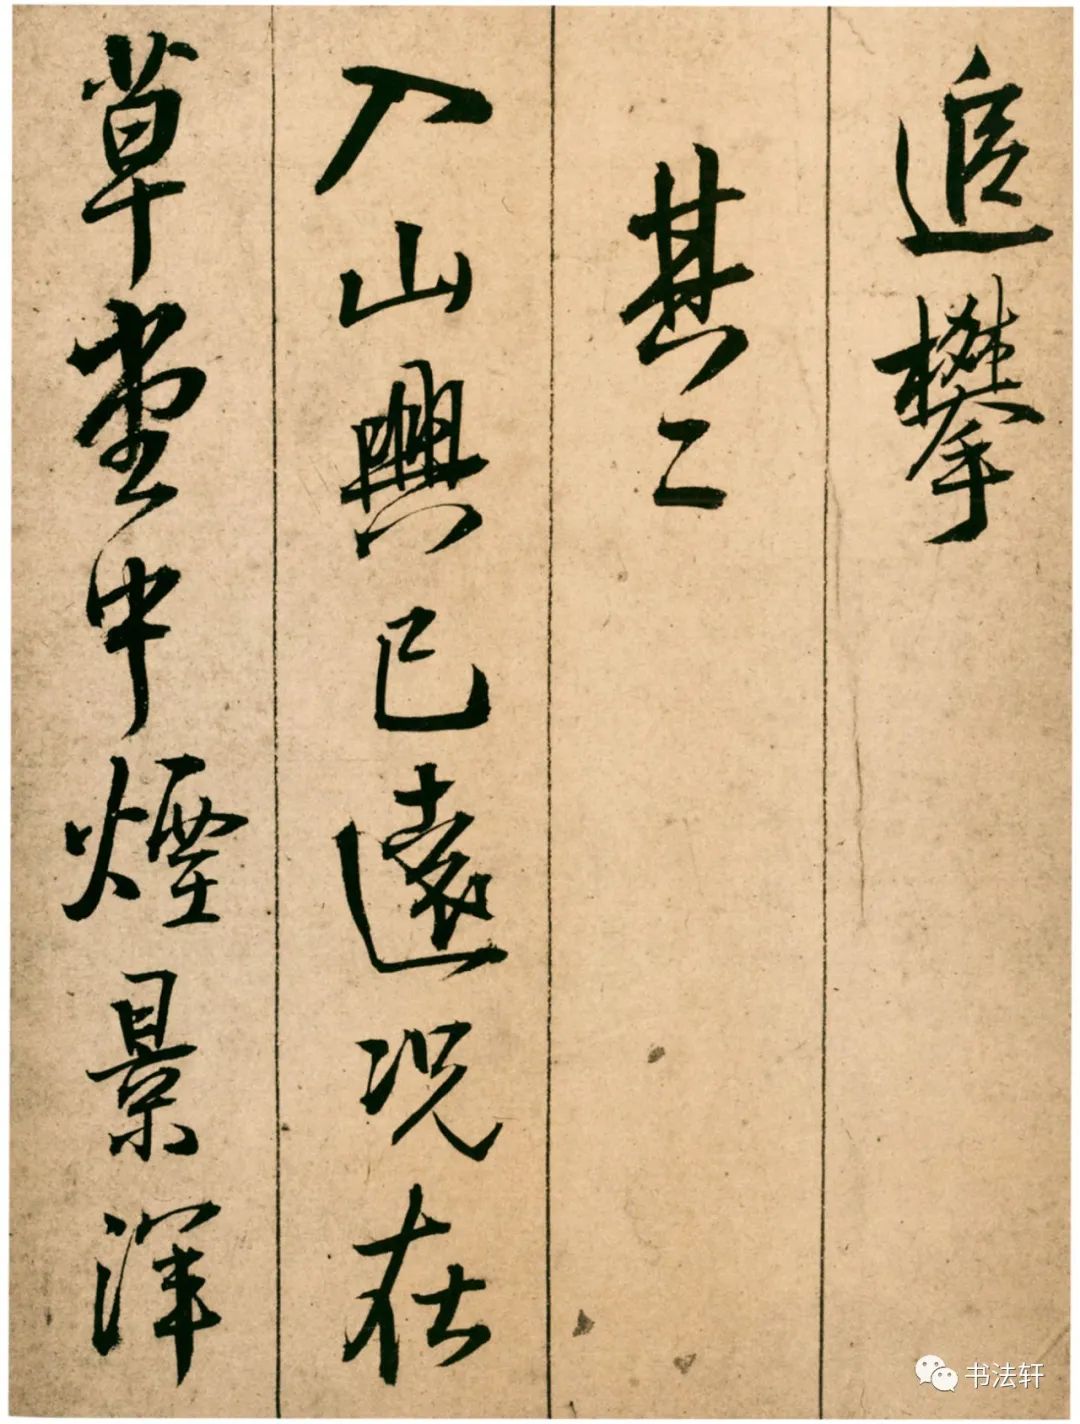 追攀
其二
入山興已遠况在
草堂中煙景渾
书法轩